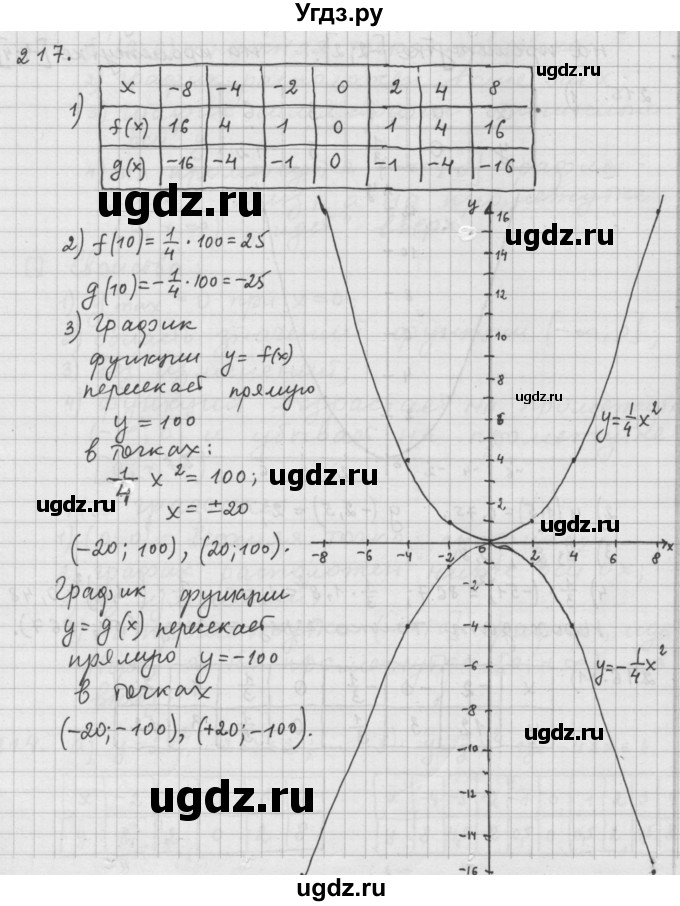 Угдз.ру
217.
1)
x -8 -4 -2 0 2 4 8
f(x) 16 4 1 0 1 4 16
g(x) -16 -4 -1 0 -1 -4 -16
2) f(10) = 1/4 · 100 = 25
g(10) = -1/4 · 100 = -25
3) График
функции y = f(x)
пересекает прямую
y = 100
в точках:
1/4 x² = 100;
x = ±20
(-20; 100), (20; 100).
График функции
y = g(x) пересекает
прямую y = -100
в точках
(-20; -100), (+20; -100).
y
16
14
12
10
8
6
4
2
y = 1/4 x²
-8 -6 -4 -2 0 2 4 6 8 x
-2
-4
-6
-8
-10
-12
-14
-16
y = -1/4 x²
ugdz.ru
ugdz.ru
ugdz.ru
ugdz.ru
ugdz.ru
ugdz.ru
ugdz.ru
ugdz.ru
ugdz.ru